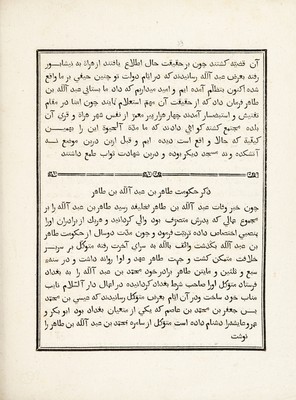 آن قضیّه گشتند چون بر حقیقت حال اطلاع یافتند از هراة به نیشابور
رفته بعرض عبد آلله رسانیدند که در ایّام دولت تو چنین حیفی بر ما واقع
شده اکنون بتظلّم آمده ایم و امید میداریم که داد ما بستانی عبد آلله بن
طاهر فرمان داد که از حقیقت آن مهمّ استعلام نمایند چون امنا در مقام
تفتیش و استبصار آمدند چهار هزار پیر معمر از نفس شهر هراة و قری آن
بلده مجتمع گشته گواهی دادند که ما مدّة آلحیوة این را بهمین
کیفیّة که حالا واقع است دیده ایم و قبل ازین درین موضع نه
آتشکده و نه مسجد دیگر بوده و درین شهادت ثواب طمع داشتند
ذکر حکومت طاهر بن عبد آلله بن طاهر
چون خبر وفات عبد آلله بن طاهر بخلیفه رسید طاهر بن عبد آلله را بر
مجموع ممالکی که پدرش متصرف بود والی گردانید و هریک از برادران اورا
بمنصبی اختصاص داده تربیّت فرمود و چون مدّت دوسال از حکومت طاهر
بن عبد آلله بگذشت واثق بالله به سرای آخرت رفته متوکّل بر سریر
خلافت متمکّن گشت و جهت طاهر عهد و لوا روانه داشت و در سنه
سبع و ثلثین و مایتین طاهر برادر خود محمّد بن عبد آلله را به بغداد
فرستاد متوکّل اورا صاحب شرط بغداد گردانیده در اعمال دار آلسّلام نایب
مناب خود ساخت ودر آن ایّام بعرض متوکّل رسانیدند که عیسی بن محمّد
بس جعفر بن محمّد بن عاصم که یکی از متعینان بغداد بود ابو بکر و
عمر وعایشه را دشنام داده است متوکّل از سامره بمحمّد بن عبد آلله بن طاهر را
نوشت